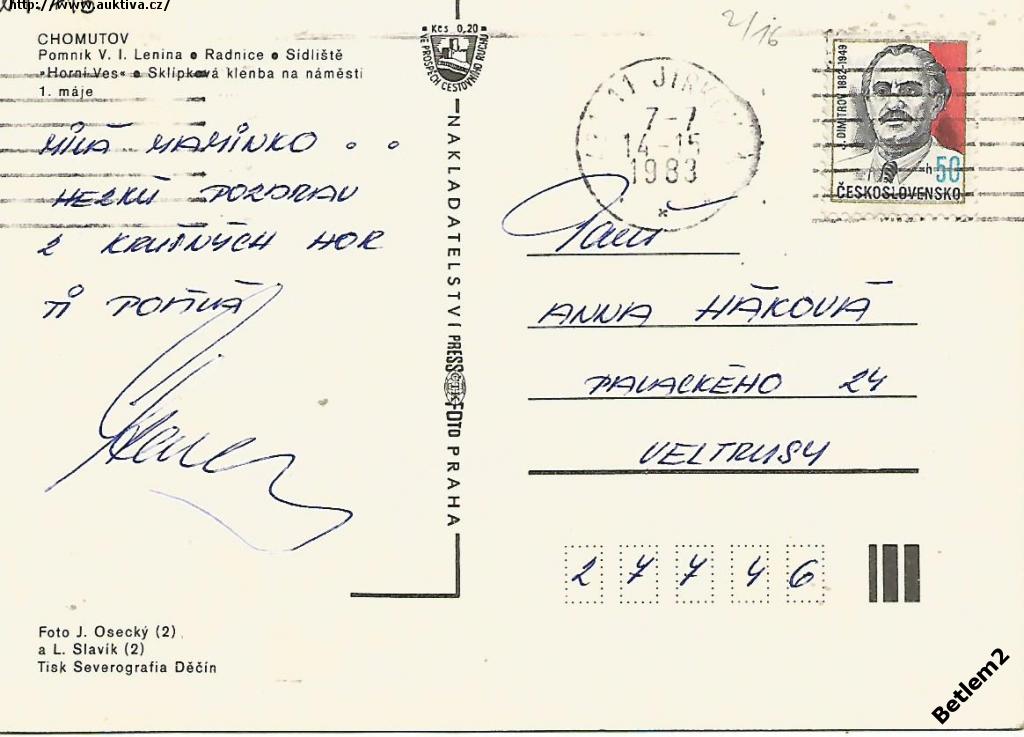 http://www.auktiva.cz/
2/16
CHOMUTOV
Pomník V. I. Lenina • Radnice • Sídliště
»Horní Ves« • Sklípková klenba na náměstí
1. máje
Kčs 0,20
VE PROSPĚCH CESTOVNÍHO RUCHU
11 JIRKOV
7-7
14-15
1983
J. DIMITROV 1882-1949
50 h
ČESKOSLOVENSKO
MILÁ MAMINKO . .
HEZKÝ POZDRAV
Z KRUŠNÝCH HOR
TI POSÍLÁ
NAKLADATELSTVÍ PRESSFOTO PRAHA
ČTK
Paní
ANNA HÁKOVÁ
PALACKÉHO 24
VELTRUSY
27746
Foto J. Osecký (2)
a L. Slavík (2)
Tisk Severografia Děčín
Betlem2